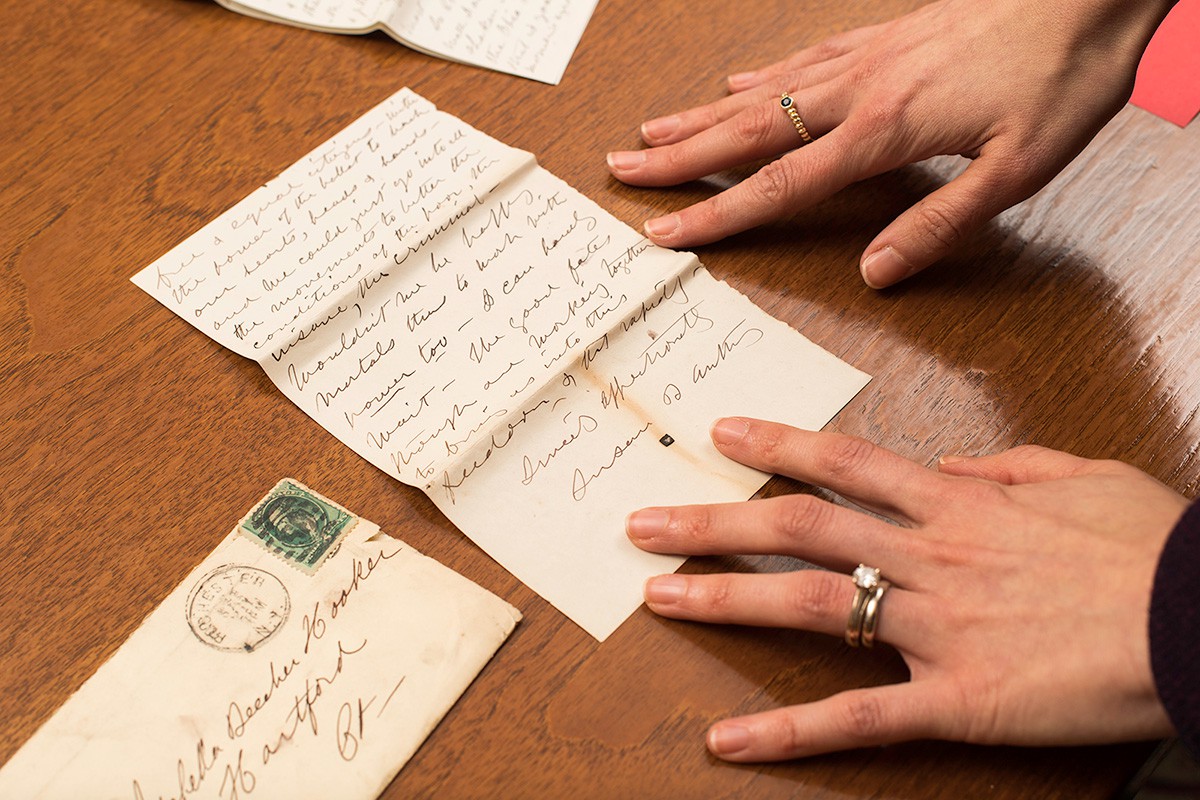 free & equal citizens - with
the power of the ballot to back
our hearts, heads & hands -
and we could just go into all
the movements to better the
conditions of the poor, the
insane, the criminal,
Wouldn't we be happy
mortals thus to work with
power too - I can hardly
wait - The good fates
though are working together
to bring us into this
freedom & that rapidly -
Sincerely affectionately
Susan B Anthony
ROCHESTER
N.Y.
Isabella Beecher Hooker
Hartford
Ct -